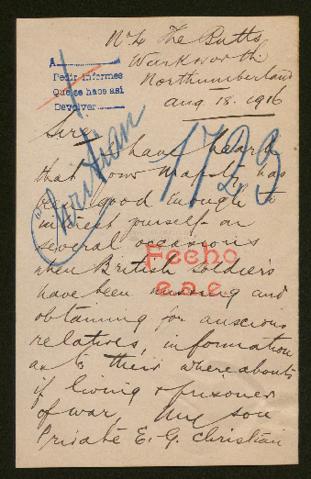 No 4 The Butts
Warkworth
Northumberland
Aug 18. 1916
A
Pedir informes
Que se hace así
Devolver
Sire,
I have heard
that your Majesty has
been good enough to
interest yourself on
several occasions
when British soldiers
have been missing and
obtaining for anscious
relatives, information
as to their whereabouts
if living & prisoner
of war, My son
Private E. G. Christian
Christian
1723
Fecho
e.a.e.